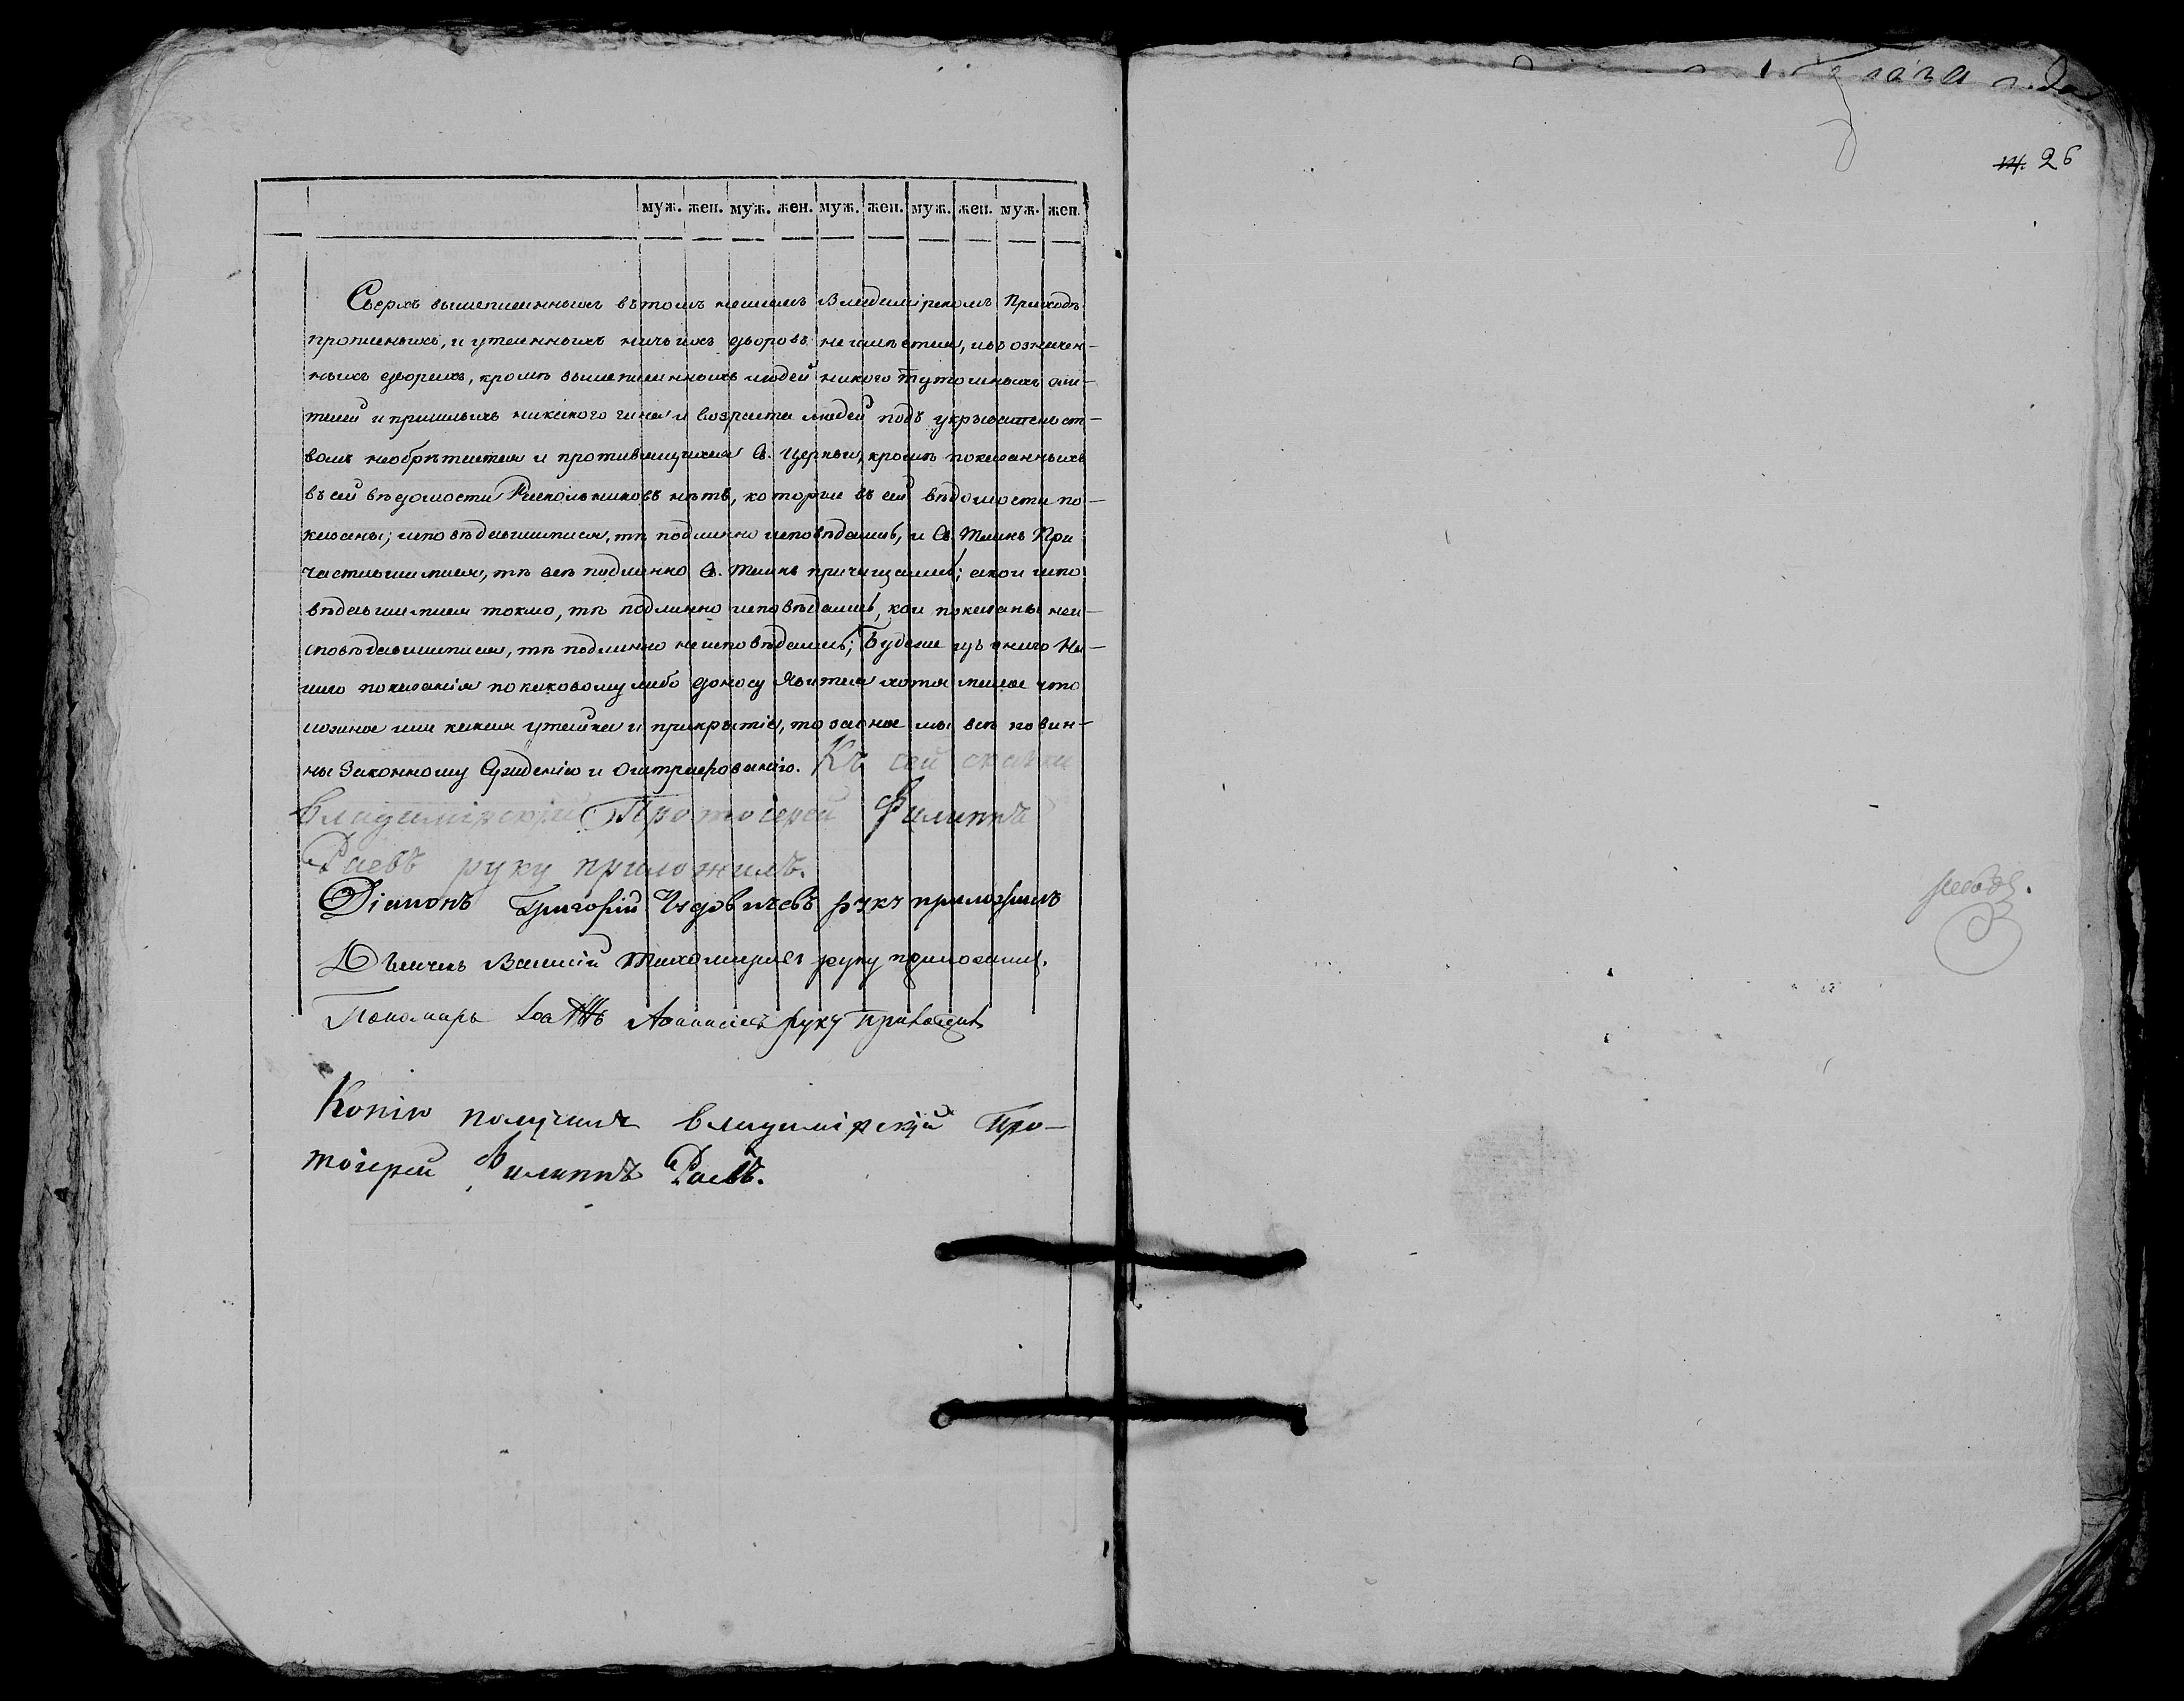 муж. жен. муж. жен. муж. жен. муж. жен. муж. жен.
Сверхъ вышеписанныхъ въ томъ нашемъ Владимірскомъ Приходѣ
прописныхъ, и утаенныхъ ничьихъ дворовъ не имѣется, и въ означен-
ныхъ дворехъ, кромѣ вышеписанныхъ людей никого тутошныхъ жи-
телей и пришлыхъ никакого чина и возраста людей подъ укрывательст-
вомъ необрѣтается и противящихся С. Церкви, кромѣ показанныхъ
въ сей вѣдомости Раскольниковъ нѣтъ, которые въ сей вѣдомости по-
казаны; исповѣдавшимися, тѣ подлинно исповѣдались, и С. Таинъ При
частившимися, тѣ всѣ подлинно С. Таинъ причащались; а кои испо
вѣдавшимися токмо, тѣ подлинно исповѣдались, кои показаны неи-
сповѣдавшимися, тѣ подлинно неисповѣдались; Будеже изъ онаго На-
шего показанія по каковому либо доносу Явится хотя малое что
ложное или какая утайка и прикрытіе, то за оное мы всѣ повин-
ны Законному Сужденію и Оштрафованію. Къ сей скаски
Владимірскій Протоіерей Филиппъ
Раевъ руку приложилъ.
Діаконъ Григорій руку приложилъ
Дьячекъ Василій Тихомировъ руку приложилъ.
Пономарь Афанасьевъ руку приложилъ
Копію получилъ Владимірскій Про-
тоіерей Филиппъ Раевъ.
14. 26